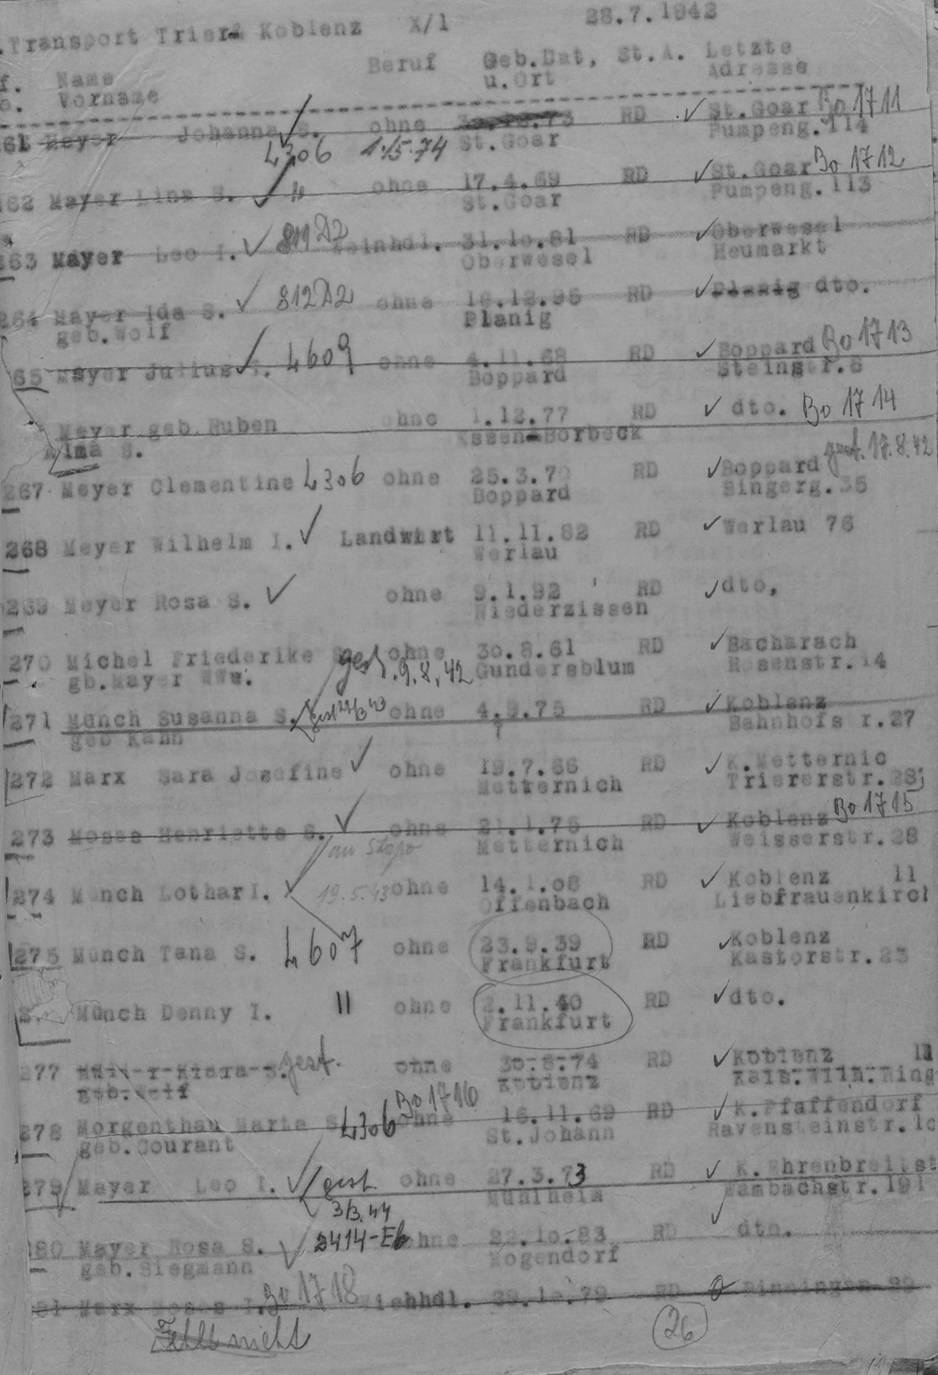 .Transport Trier& Koblenz X/1 28.7.1942
f. Name Beruf Geb.Dat, St.A. Letzte
o. Vorname u.Ort Adresse
61 Meyer Johanna S. ohne RD ✓ St.Goar Bo 1711
4306 1.5.74 St.Goar Pumpeng.114
62 Mayer Lina S. ✓ " ohne 17.4.69 RD ✓ St.Goar Bo 1712
St.Goar Pumpeng.113
263 Mayer Leo I. ✓ 811 D2 Weinhdl. 31.10.81 RD ✓ Oberwesel
Oberwesel Heumarkt
264 Mayer Ida S. ✓ 812 D2 ohne 18.12.95 RD ✓ Planig dto.
geb.Wolf Planig
65 Mayer Julius I. 4609 ohne 4.11.68 RD ✓ Boppard Bo 1713
Boppard Steingstr.6
Meyer geb.Ruben ohne 1.12.77 RD ✓ dto. Bo 1714
Alma S. Essen-Borbeck
267 Meyer Clementine 4306 ohne 25.3.70 RD ✓ Boppard gest. 17.8.42
Boppard Singerg.35
268 Meyer Wilhelm I. ✓ Landwirt 11.11.82 RD ✓ Werlau 76
Werlau
269 Meyer Rosa S. ✓ ohne 9.1.92 RD ✓ dto,
Niederzissen
270 Michel Friederike S. ohne 30.8.61 RD ✓ Bacharach
gb.Mayer Wwe. gest. 9.8.42 Gundersblum Rosenstr.14
271 Münch Susanna S. ohne 4.9.75 RD ✓ Koblenz
geb Kahn ? Bahnhofs r.27
272 Marx Sara Josefine ✓ ohne 19.7.66 RD ✓ K.Metternic
Metternich Triererstr.28;
273 Mosse Henriette S. ✓ ohne 21.1.75 RD ✓ Koblenz Bo 1715
an Stapo Metternich Weisserstr.28
274 Münch Lothar I. ✓ 19.5.43 ohne 14.1.08 RD ✓ Koblenz 11
Offenbach Liebfrauenkircl
275 Münch Tana S. 4607 ohne 23.9.39 RD ✓ Koblenz
Frankfurt Kastorstr.23
2. Münch Denny I. II ohne 2.11.40 RD ✓ dto.
Frankfurt
277 gest. ohne 30.8.74 RD ✓ Koblenz 11
Koblenz Kais.Wilh.Ring
278 Morgenthau Marta S. 4306 Bo 1716 ohne 16.11.69 RD ✓ K.Pfaffendorf
geb.Courant St.Johann Ravensteinstr.1c
279 Mayer Leo I. ✓ gest. ohne 27.3.73 RD ✓ K.Ehrenbreitst
3/3.44 Mühlheim Wambachstr.191
80 Mayer Rosa S. ✓ 2414-Eb ohne 22.10.83 RD ✓ dto.
geb.Siegmann Mogendorf
81 Marx Moses I. Bo 1718 Viehhdl. 29.12.79 RD Binningen 99
Fehlt nicht 26